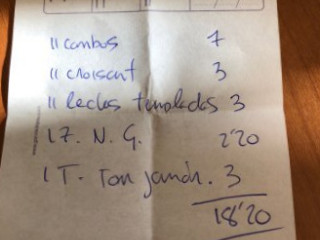 11 combos 7
11 croisant 3
11 leches templadas 3
1 7. N. G. 2'20
1 T. Tom jamón. 3
18'20